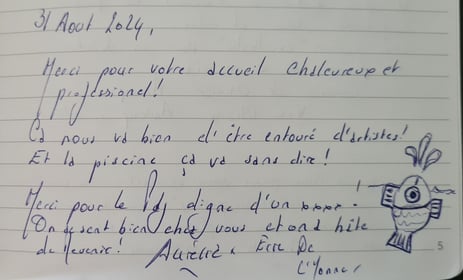 31 Août 2024,
Merci pour votre accueil chaleureux et
professionel!
Ça nous va bien d'être entouré d'artistes!
Et la piscine ça va sans dire!
Merci pour le pdj digne d'un ****!
On se sent bien chez vous et on a hâte
de revenir!
Aurélie & Eric De
L'Yonne
5